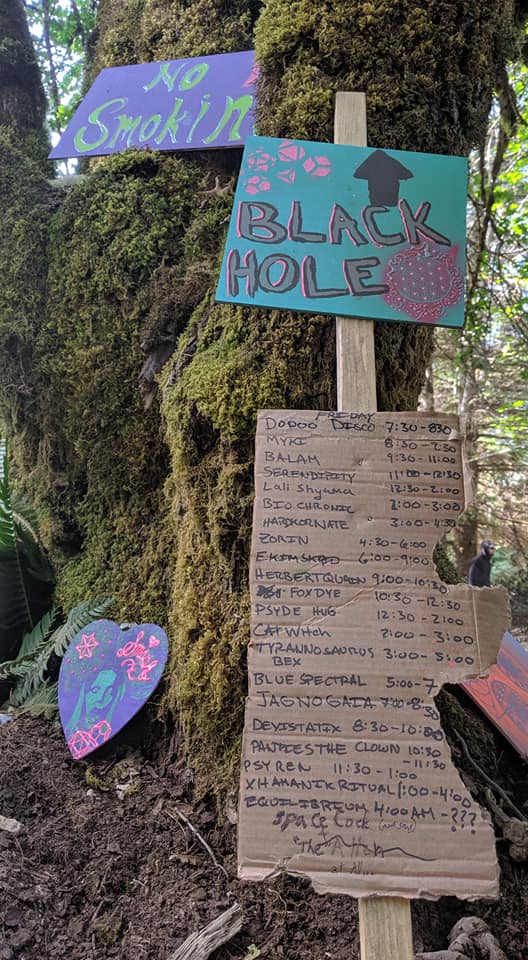 No
Smokin
BLACK
HOLE
FRIDAY
DODOO DISCO 7:30-830
MYKI 8:30-9:30
BALAM 9:30-11:00
SERENDIPITY 11:00-12:30
Lali Shyama 12:30-2:00
BIO CHRONIC 2:00-3:00
HARDKORNATE 3:00-4:30
ZORIN 4:30-6:00
EKIMSKRD 6:00-9:00
HERBERT QUAIN 9:00-10:30
FOXDYE 10:30-12:30
PSYDE HUG 12:30-2:00
CATWitch 2:00-3:00
TYRANNOSAURUS 3:00-5:00
BEX
BLUE SPECTRAL 5:00-7
JAGNOGAIA 7:00-8:30
DEVISTATIX 8:30-10:30
PAWPIES THE CLOWN 10:30
-11:30
PSYREN 11:30-1:00
XHAMANIK RITUAL 1:00-4:00
EQUILIBREUM 4:00AM-???
Space Cock
"The
at